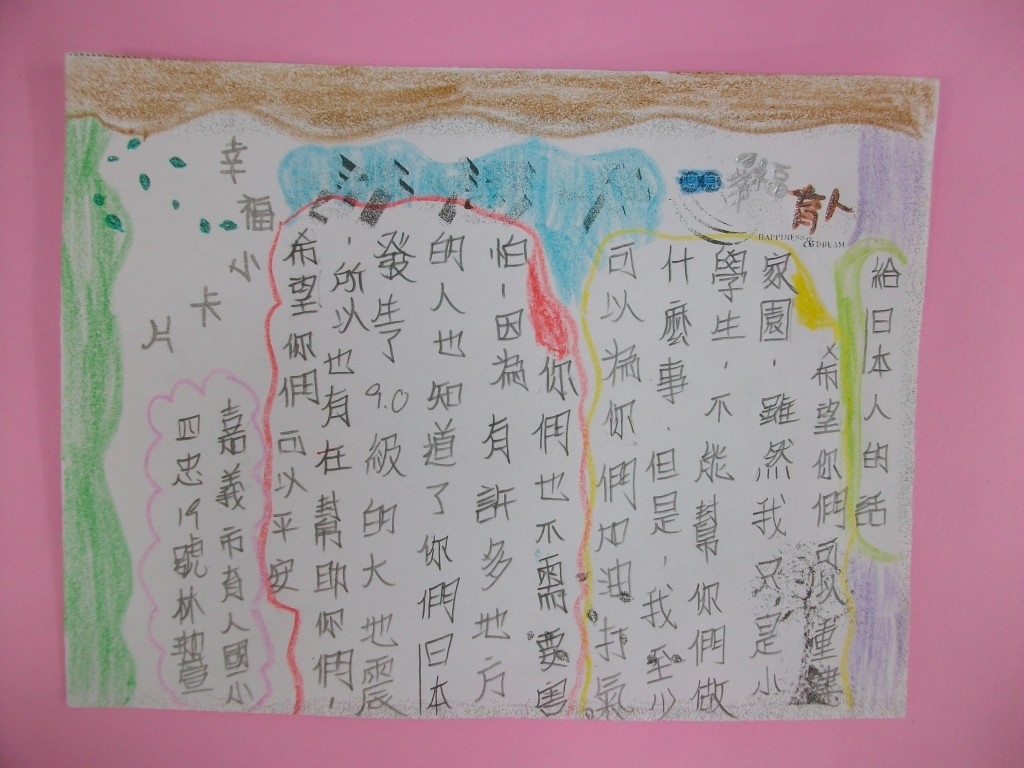 幸福
育人
HAPPINESS & DREAM
給日本人的話
希望你們可以重建
家園,雖然我只是小
學生,不能幫你們做
什麼事,但是,我至少
可以為你們加油打氣
你們也不需要害
怕,因為有許多地方
的人也知道了你們日本
發生了9.0級的大地震
,所以也有在幫助你們,
希望你們可以平安
幸福小卡片
嘉義市育人國小
四忠19號林